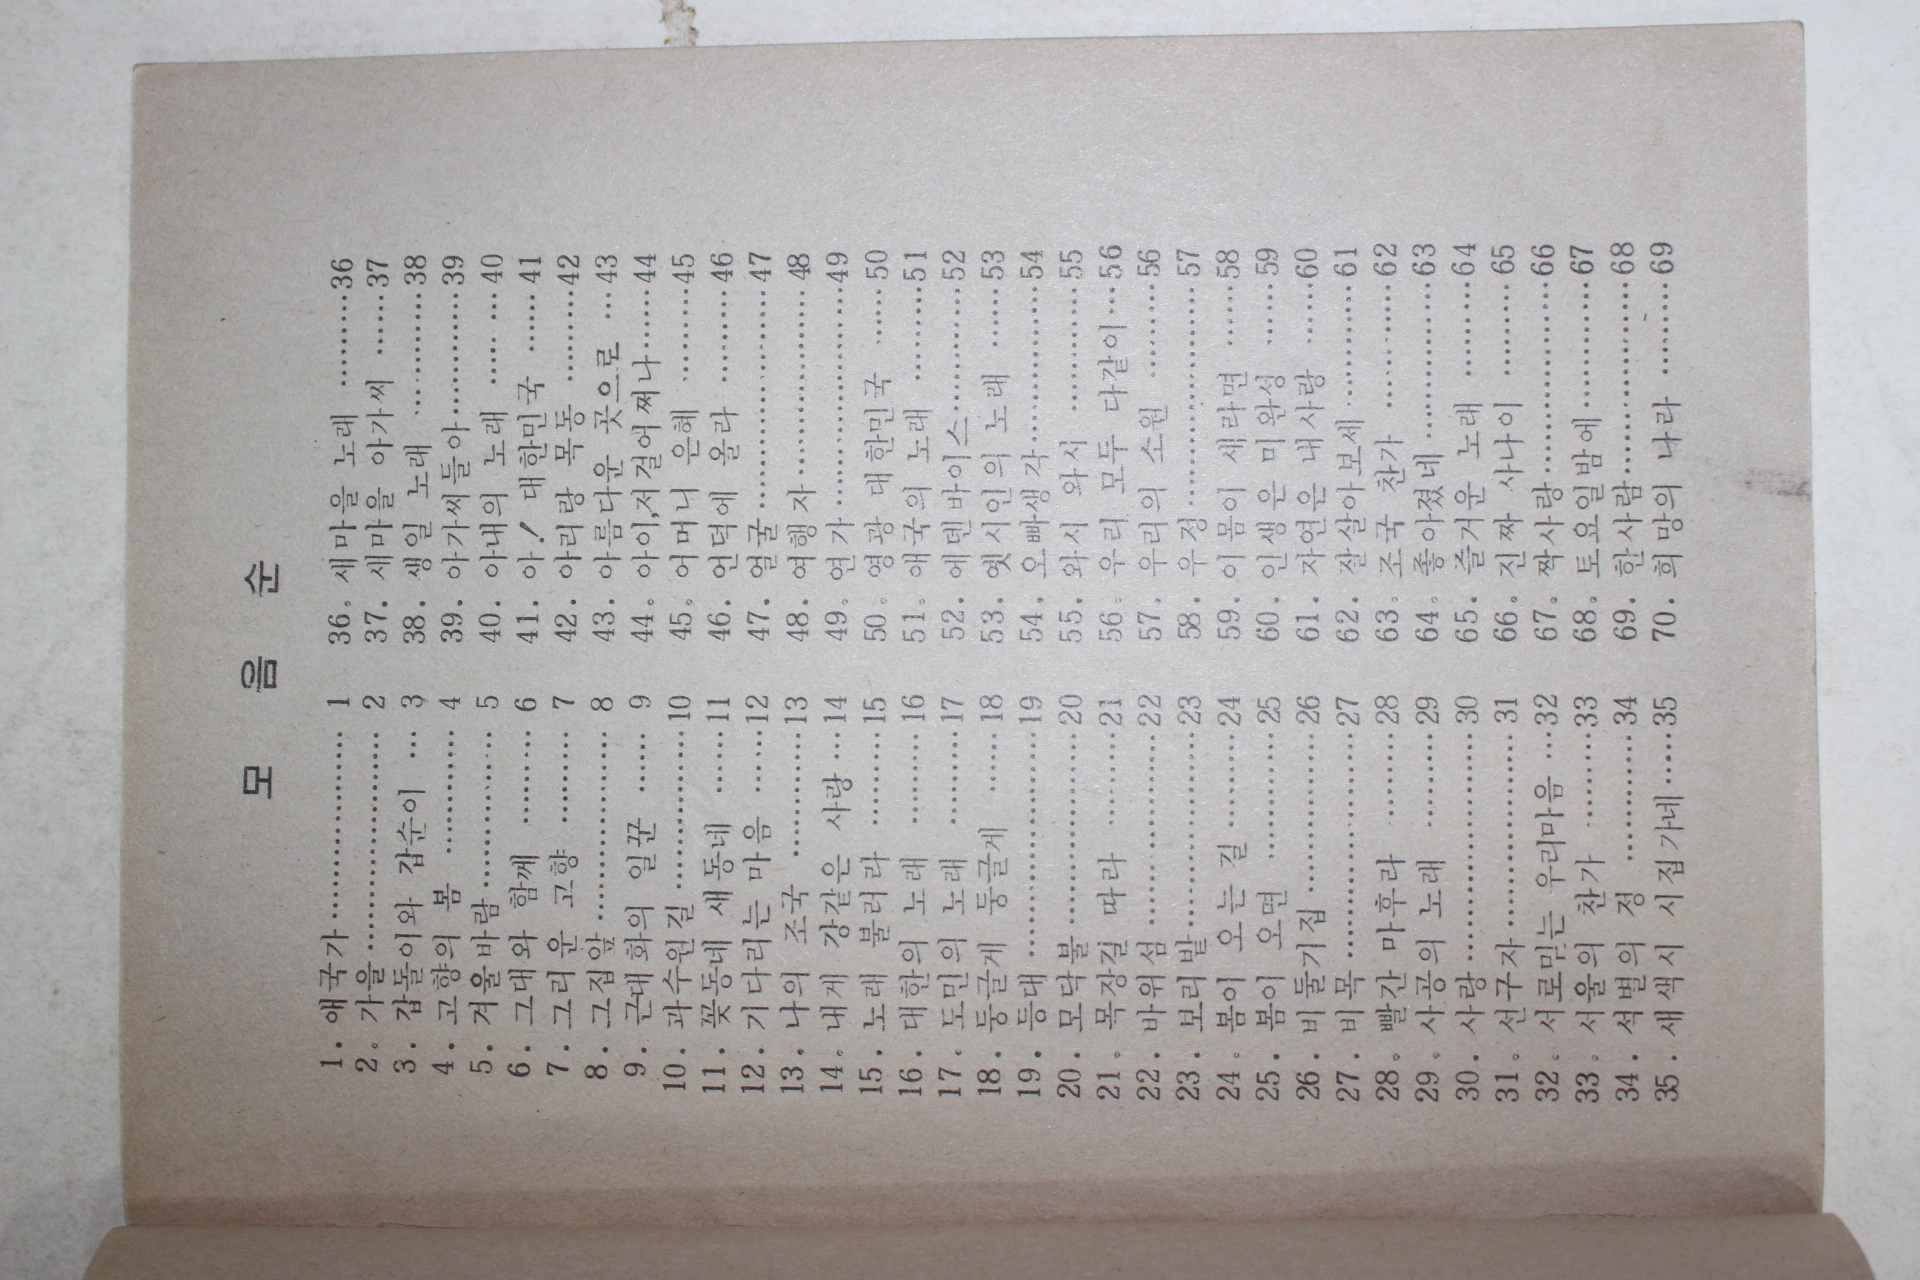 모 음 순
1. 애국가 ……………… 1
2. 가을 ……………… 2
3. 갑돌이와 갑순이 … 3
4. 고향의 봄 ………… 4
5. 겨울바람 ………… 5
6. 그대와 함께 ……… 6
7. 그리운 고향 ……… 7
8. 그집앞 …………… 8
9. 근대화의 일꾼 …… 9
10. 과수원길 ………… 10
11. 꽃동네 새동네 …… 11
12. 기다리는 마음 …… 12
13. 나의 조국 ………… 13
14. 내게 강같은 사랑 … 14
15. 노래 불러라 ……… 15
16. 대한의 노래 ……… 16
17. 도민의 노래 ……… 17
18. 둥글게 둥글게 …… 18
19. 등대 ……………… 19
20. 모닥불 …………… 20
21. 목장길 따라 ……… 21
22. 바위섬 …………… 22
23. 보리밭 …………… 23
24. 봄이 오는 길 ……… 24
25. 봄이 오면 ………… 25
26. 비둘기집 ………… 26
27. 비목 ……………… 27
28. 빨간 마후라 ……… 28
29. 사공의 노래 ……… 29
30. 사랑 ……………… 30
31. 선구자 …………… 31
32. 서로믿는 우리마음 … 32
33. 서울의 찬가 ……… 33
34. 석별의 정 ………… 34
35. 새색시 시집가네 …… 35
36. 새마을 노래 ……… 36
37. 새마을 아가씨 …… 37
38. 생일 노래 ………… 38
39. 아가씨들아 ………… 39
40. 아내의 노래 ……… 40
41. 아! 대한민국 …… 41
42. 아리랑 목동 ……… 42
43. 아름다운 곳으로 … 43
44. 아이,저걸어쩌나 …… 44
45. 어머니 은혜 ……… 45
46. 언덕에 올라 ……… 46
47. 얼굴 ……………… 47
48. 여행자 …………… 48
49. 연가 ……………… 49
50. 영광 대한민국 …… 50
51. 애국의 노래 ……… 51
52. 에덴바이스 ………… 52
53. 옛시인의 노래 …… 53
54. 오빠생각 ………… 54
55. 와서 와서 ………… 55
56. 우리 모두 다같이 … 56
57. 우리의 소원 ……… 56
58. 우정 ……………… 57
59. 이몸이 새라면 …… 58
60. 인생은 미완성 …… 59
61. 자연은 내사랑 …… 60
62. 잘살아보세 ………… 61
63. 조국 찬가 ………… 62
64. 좋아졌네 ………… 63
65. 즐거운 노래 ……… 64
66. 진짜 사나이 ……… 65
67. 짝사랑 …………… 66
68. 토요일밤에 ………… 67
69. 한사람 …………… 68
70. 희망의 나라 ……… 69